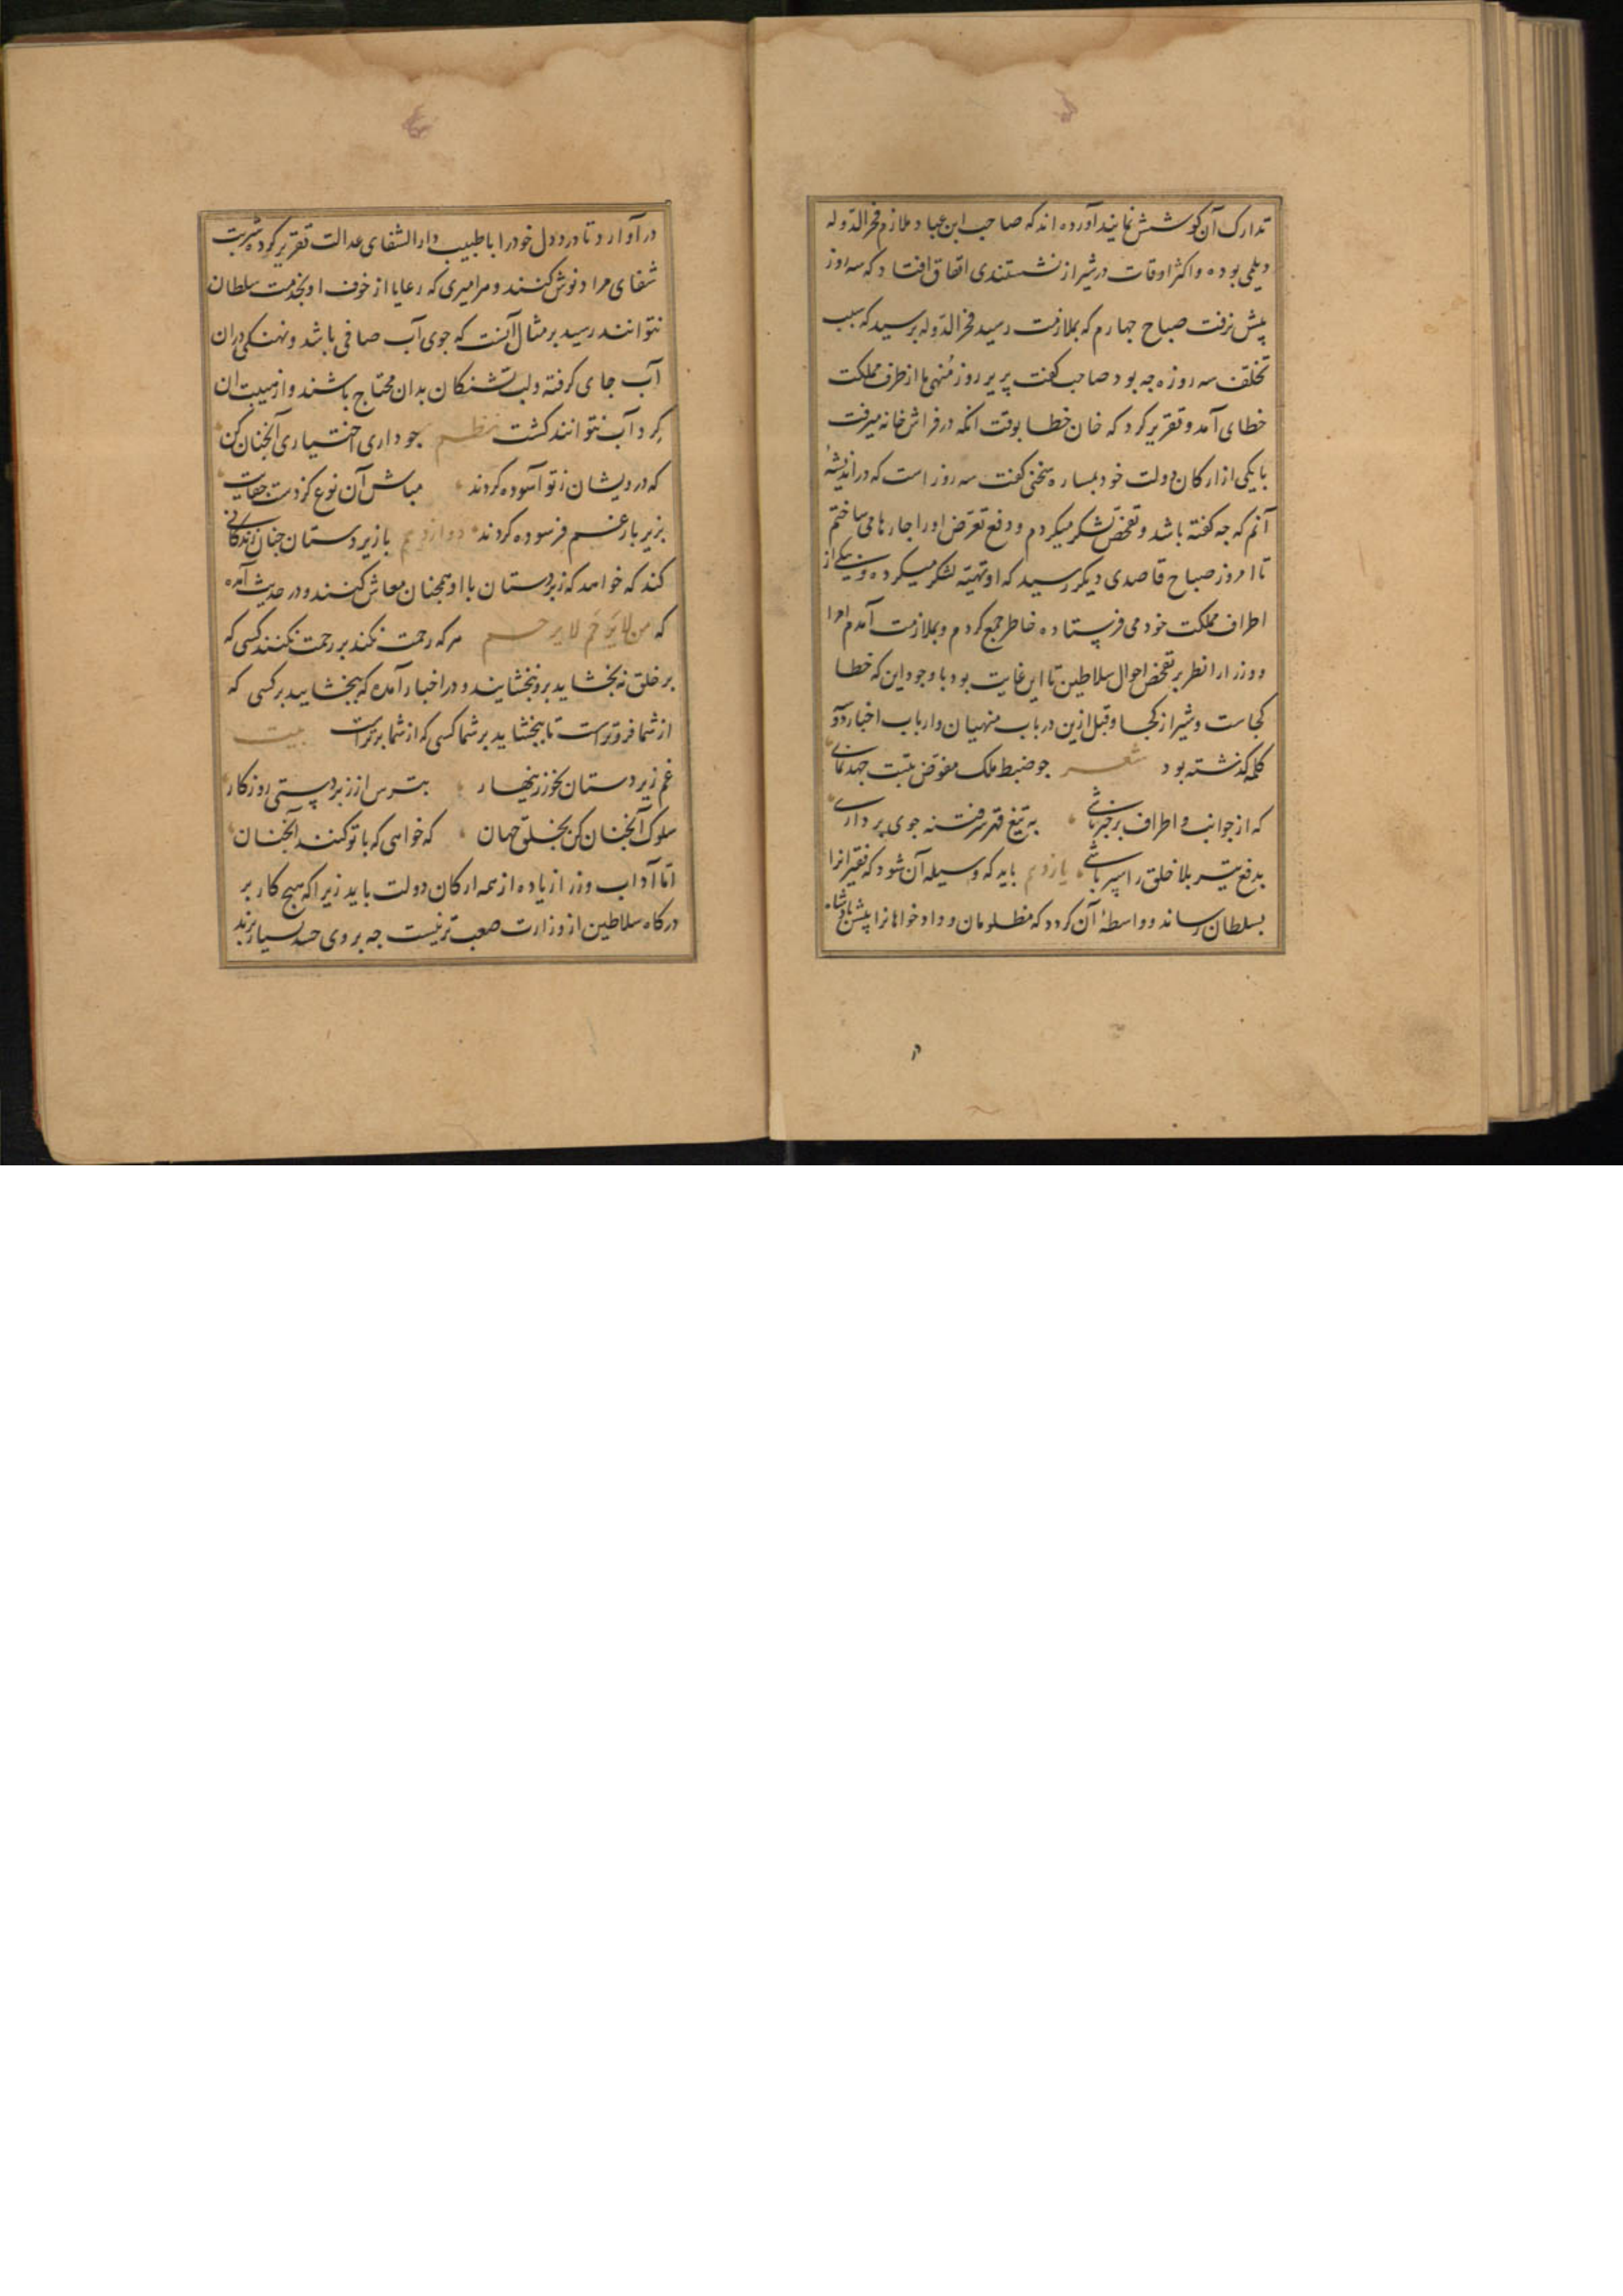 تدارک آن کوشش نمایند آورده اند که صاحب ابن عباد ملازم فخر الدوله
دیلمی بوده و اکثر اوقات در شیراز نشستندی اتفاق افتاد که سه روز
پیش نرفت صباح چهارم که بملازمت رسید فخر الدوله پرسید که سبب
تخلف سه روزه چه بود صاحب کفت پریر روز منهی ما از طرف مملکت
خطای آمد و تقریر کرد که خان خطا بوقت انکه در فراش خانه میرفت
با یکی از ارکان دولت خود بساره سخنی کفت سه روز است که در اندیشهٔ
آنم که چه کفته باشد و تفحص لشکر میکردم و دفع تعرض او را چارها می ساختم
تا امروز صباح قاصدی دیکر رسید که او تهیه لشکر میکرده و بیکی از
اطراف مملکت خود می فرستاده خاطر جمع کردم و بملازمت آمدم امرا
و وزرا را نظر بر تفحص احوال سلاطین تا این غایت بود با وجود این که خطا
کجاست و شیراز کجا و قبل ازین در باب منهیان و ارباب اخبار دو
کلمه کذشته بود شعر چو ضبط ملک مفوض بتست جهد نمای
که از جوانب و اطراف بر خبر باشی به تیغ قهر سر فتنه جوی برداری
بدفع تیر بلا خلق را سپر باشی یازدهم باید که وسیله آن شود که فقیرانرا
بسلطان رساند و واسطهٔ آن کردد که مظلومان و داد خواهانرا پیش پادشاه
در
در آوارد تا درد دل خود را با طبیب دار الشفای عدالت تقریر کرده شربت
شفای مراد نوش کنند و هر امیری که رعایا از خوف او بخدمت سلطان
نتوانند رسید بر مثال آنست که جوی آب صافی باشد و نهنکی در ان
آب جای کرفته و لب تشنکان بدان محتاج باشند و از هیبت ان
کرد آب نتوانند کشت نظم چو داری اختیاری آنچنان کن
که درویشان ز تو آسوده کردند مباش آن نوع کز دست جفایت
بزیر بار غم فرسوده کردند دوازدهم با زیر دستان چنان زندکانی
کند که خواهد که زبردستان با او همچنان معاش کنند و در حدیث آمده
که من لا یرحم لا یرحم هر که رحمت نکند بر رحمت نکنند کسی که
بر خلق نه بخشاید برو نبخشایند و در اخبار آمده که ببخشایید بر کسی که
از شما فروترست تا ببخشاید بر شما کسی که از شما برترست بیت
غم زیر دستان بخور زینهار بترس از زبردستی روزکار
سلوک آنچنان کن بخلق جهان که خواهی که با تو کنند آنچنان
اما آداب وزرا زیاده از همه ارکان دولت باید زیرا که هیچ کار بر
درکاه سلاطین از وزارت صعب تر نیست چه بر وی حسد بسیار برند